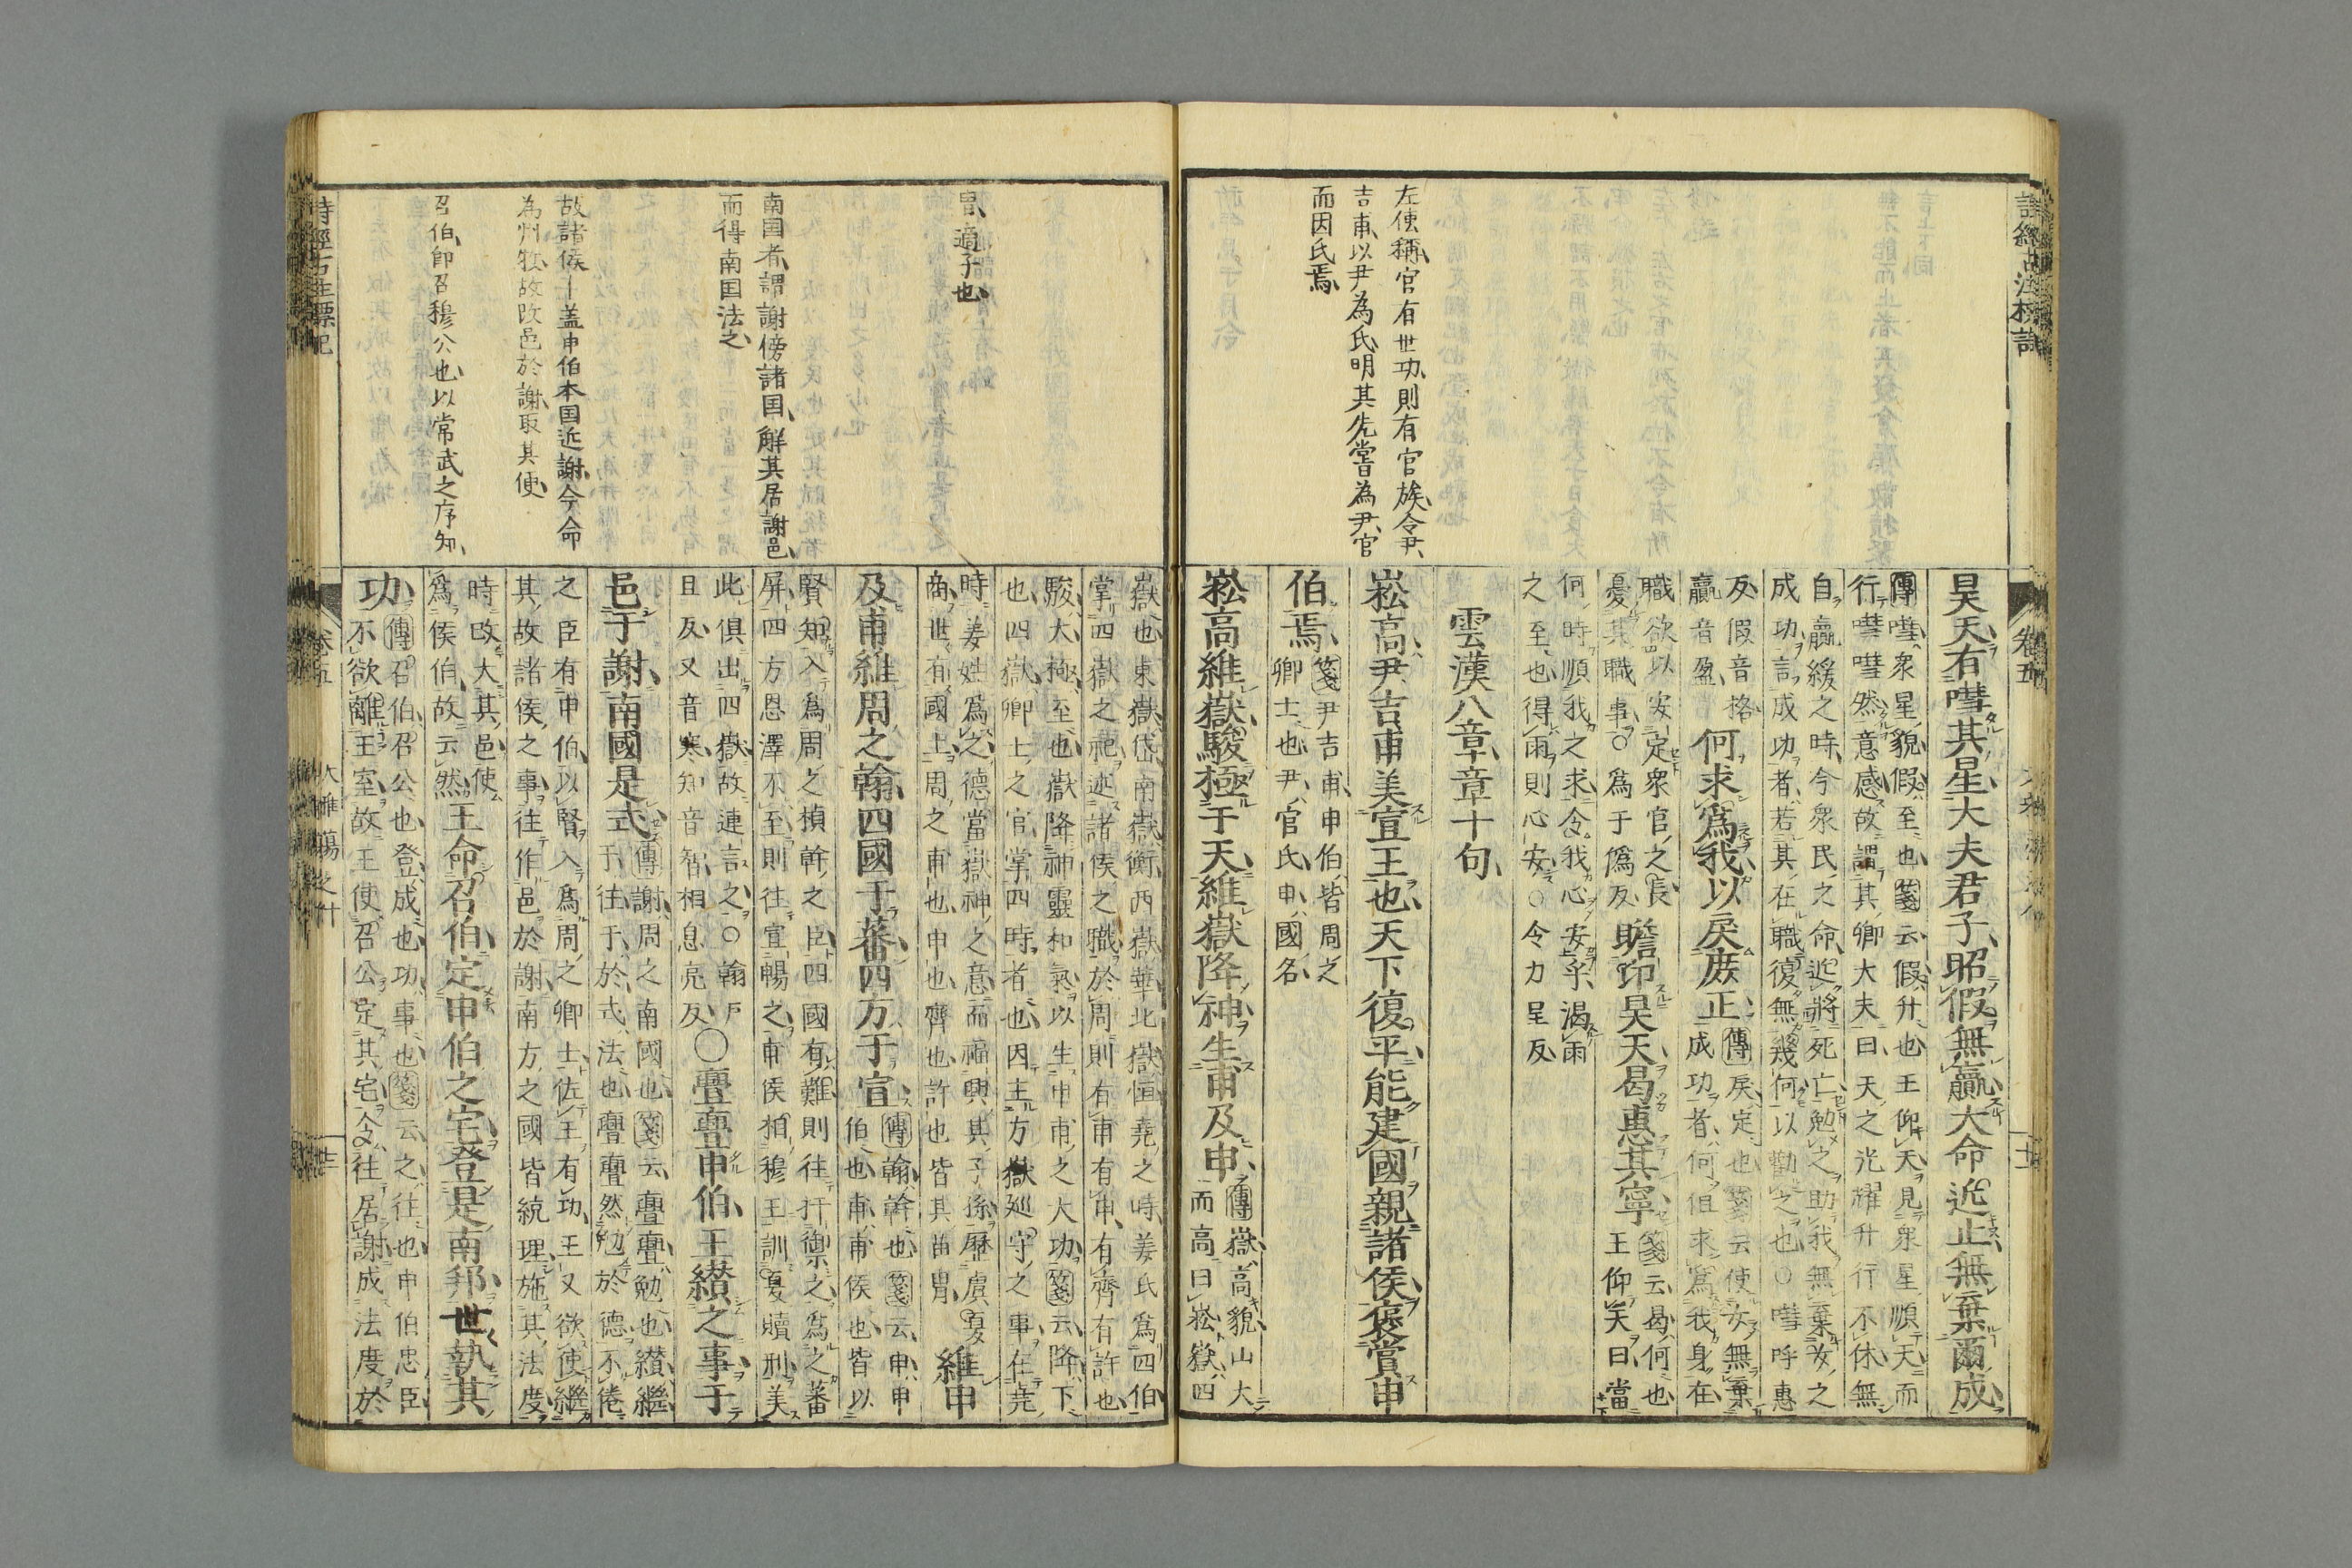 左使稱官有世功則有官族令尹
吉甫以尹為氏明其先嘗為尹官
而因氏焉
昊天有嘒其星大夫君子昭假無贏大命近止無棄爾成
傳嘒衆星貌假至也箋云假升也王仰天見衆星順天而
行嘒嘒然意感故謂其卿大夫曰天之光耀升行不休無
自贏緩之時今衆民之命近將死亡勉之助我無棄女之
成功言成功者若其在職復無幾何以勸之也○嘒呼惠
反假音格
贏音盈
何求爲我以戾庶正
傳戾定也箋云使女無棄
成功者何但求爲我身在
職欲以安定衆官之長
憂其職事○爲于僞反
瞻卬昊天曷惠其寧
箋云曷何也
王仰天曰當
何時順我之求令我心安乎渴雨
之至也得雨則心安○令力呈反
雲漢八章章十句
崧高尹吉甫美宣王也天下復平能建國親諸侯褒賞申
伯焉
箋尹吉甫申伯皆周之
卿士也尹官氏申國名
崧高維嶽駿極于天維嶽降神生甫及申
傳嶽高貌山大
而高曰崧嶽四
冑適子也
南国者謂謝傍諸国解其居謝邑
而得南国法之
故諸侯十盖申伯本国近謝今命
為州牧故改邑於謝取其便
召伯即召穆公也以常武之序知
嶽也東嶽岱南嶽衡西嶽華北嶽恒堯之時姜氏爲四伯
掌四嶽之祀述諸侯之職於周則有甫有申有齊有許也
駿大極至也嶽降神靈和氣以生申甫之大功箋云降下
也四嶽卿士之官掌四時者也因主方嶽巡守之事在堯
時姜姓爲之德當嶽神之意而福興其子孫歷虞夏
商世有國土周之甫也申也齊也許也皆其苗冑
維申
及甫維周之翰四國于蕃四方于宣
傳翰幹也箋云申申
伯也甫甫侯也皆以
賢知入爲周之楨幹之臣四國有難則往扞禦之爲之蕃
屏四方恩澤不至則往宣暢之甫侯相穆王訓夏贖刑美
此俱出四嶽故連言之○翰戶
旦反又音寒知音智相息亮反
○亹亹申伯王纘之事于
邑于謝南國是式
傳謝周之南國也箋云亹亹勉也纘繼
于往于於式法也亹亹然勉於德不倦
之臣有申伯以賢入爲周之卿士佐王有功王又欲使繼
其故諸侯之事往作邑於謝南方之國皆統理施其法度
時改大其邑使
爲侯伯故云然
王命召伯定申伯之宅登是南邦世執其
功
傳召伯召公也登成也功事也箋云之往也申伯忠臣
不欲離王室故王使召公定其宅令往居謝成法度於
卷五
大雅蕩之什